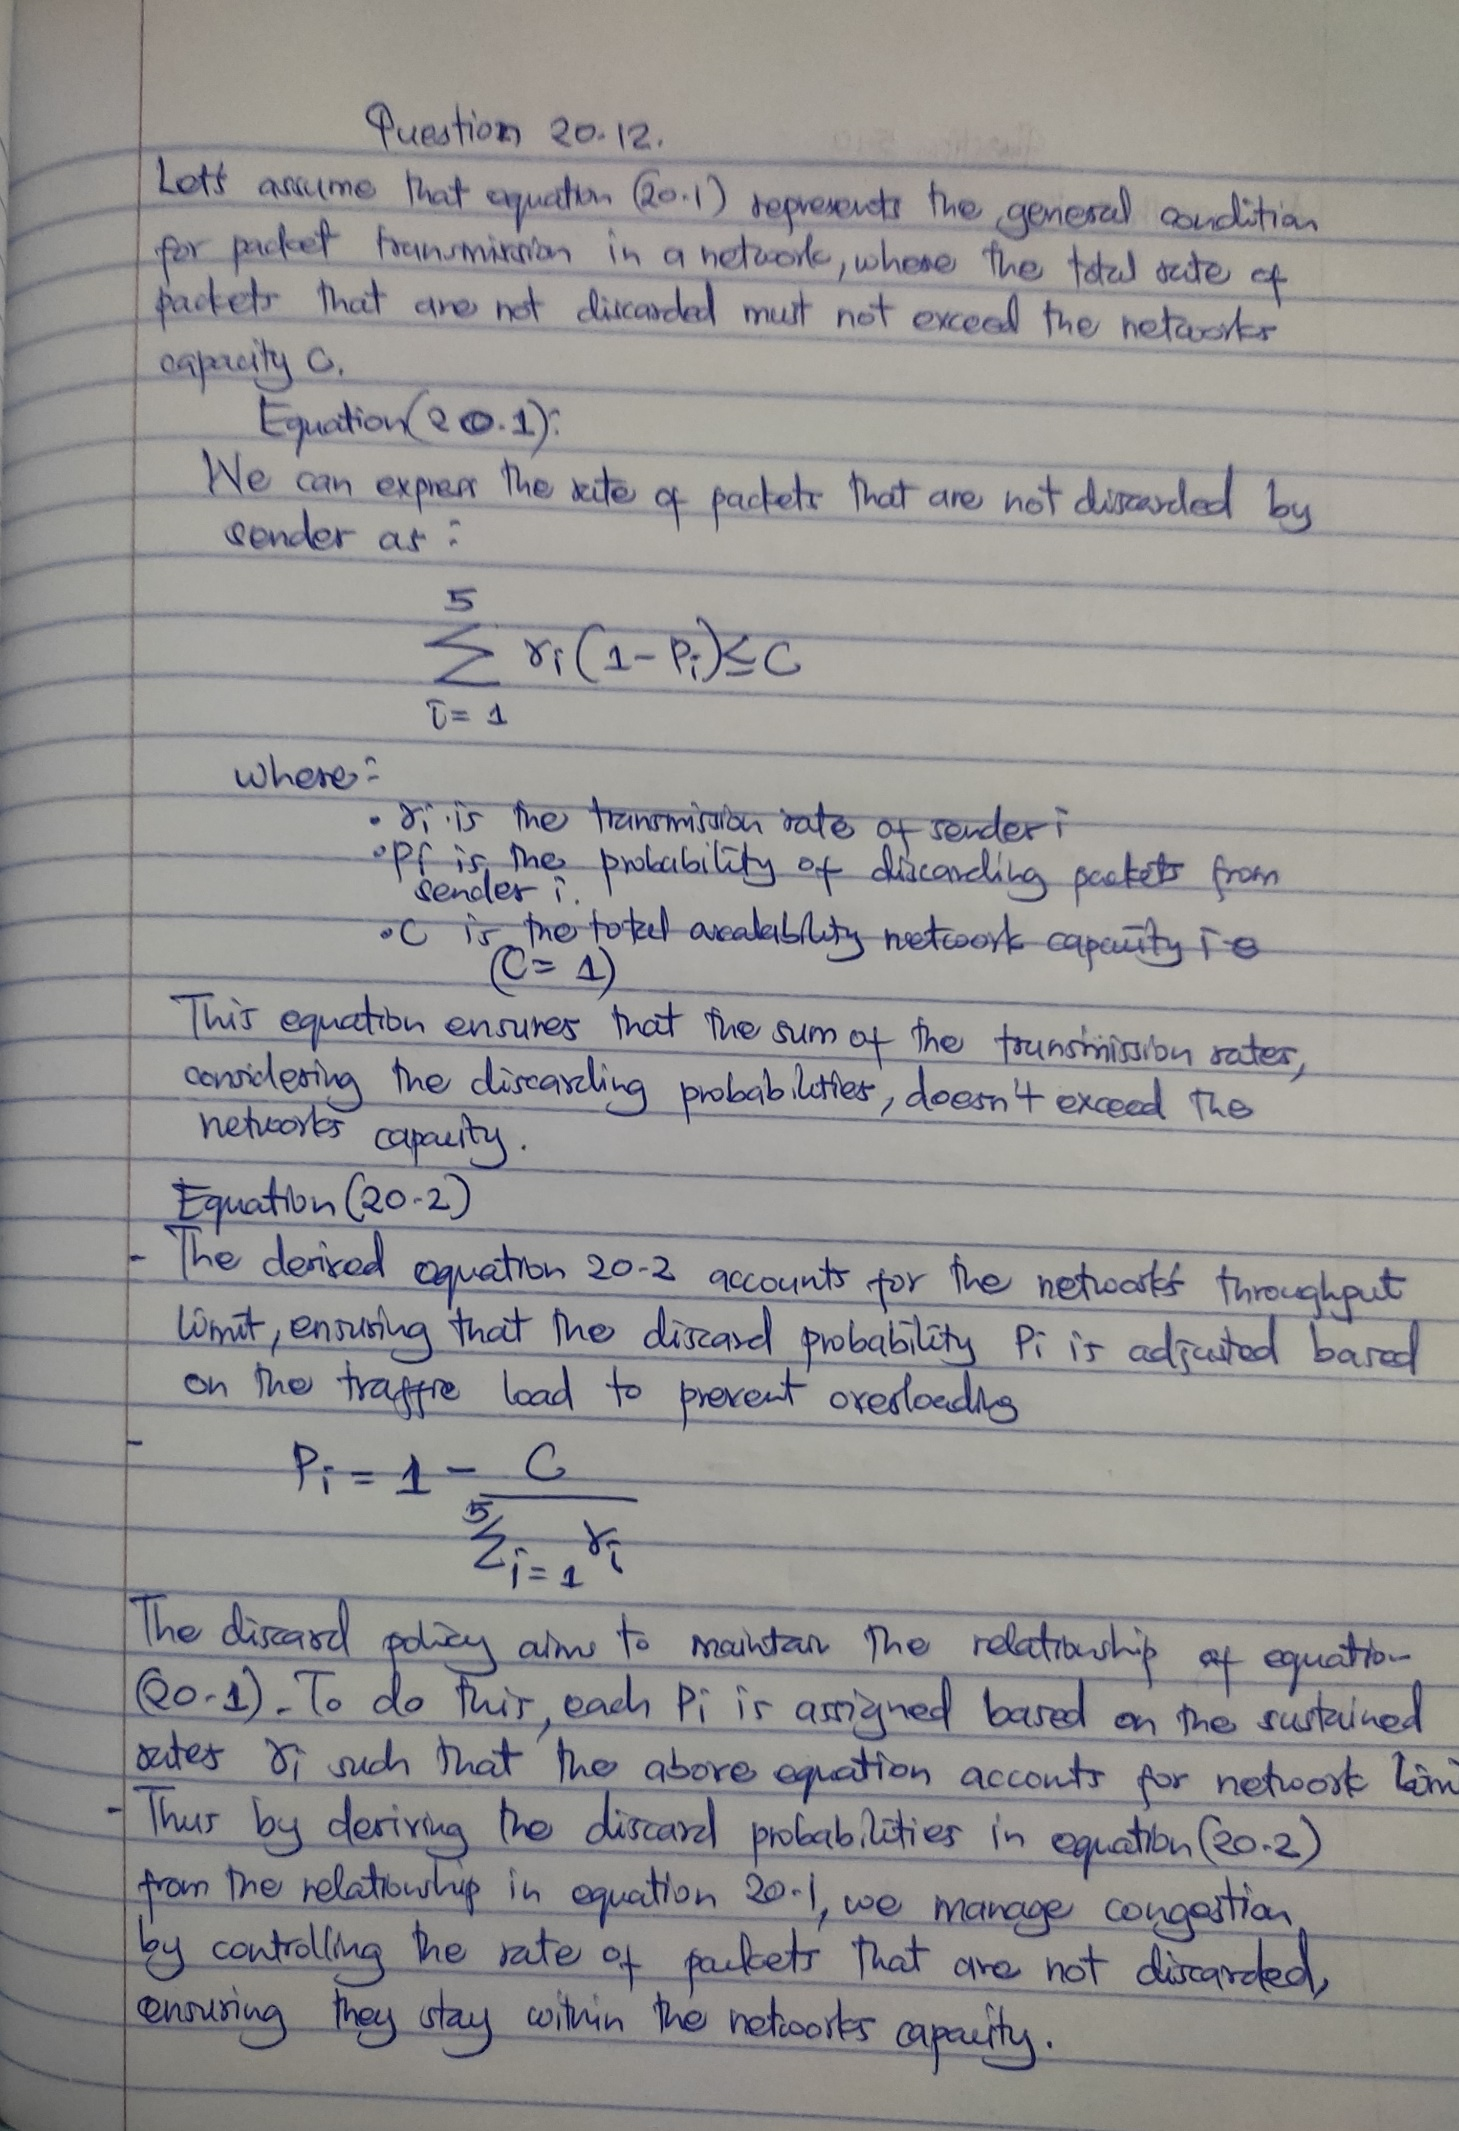 Question 20.12.
Let's assume that equation (20.1) represents the general condition
for packet transmission in a network, where the total rate of
packets that are not discarded must not exceed the networks
capacity C.
Equation (20.1):
We can express the rate of packets that are not discarded by
sender as:
5
∑ ri (1 - Pi) ≤ C
i = 1
where:
• ri is the transmission rate of sender i
• Pi is the probability of discarding packets from
sender i.
• C is the total availability network capacity i e
(C = 1)
This equation ensures that the sum of the transmission rates,
considering the discarding probabilities, doesn't exceed the
networks capacity.
Equation (20-2)
- The derived equation 20-2 accounts for the network's throughput
limit, ensuring that the discard probability Pi is adjusted based
on the traffic load to prevent overloading
- Pi = 1 - C
5
∑ ri
i = 1
The discard policy aims to maintain the relationship of equation
(20-1). To do this, each Pi is assigned based on the sustained
rates ri such that the above equation acconts for network
- Thus by deriving the discard probabilities in equation (20-2)
from the relationship in equation 20-1, we manage congestion
by controlling the rate of packets that are not discarded,
ensuring they stay within the networks capacity.